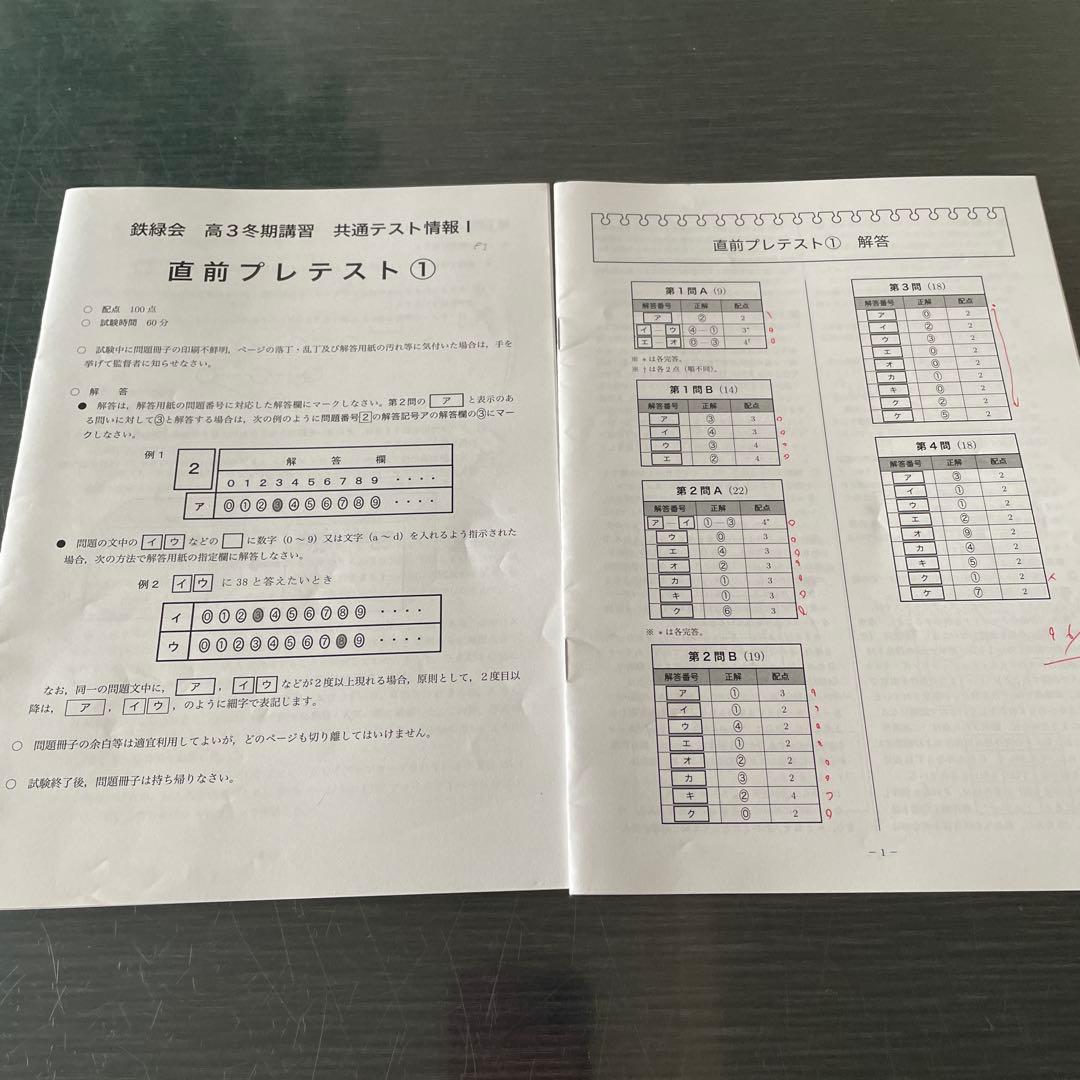 鉄緑会 高3冬期講習 共通テスト情報Ⅰ
直前プレテスト①
○ 配点 100点
○ 試験時間 60分
○ 試験中に問題冊子の印刷不鮮明，ページの落丁・乱丁及び解答用紙の汚れ等に気付いた場合は，手を
挙げて監督者に知らせなさい。
○ 解 答
● 解答は，解答用紙の問題番号に対応した解答欄にマークしなさい。第2問の ア と表示のあ
る問いに対して③と解答する場合は，次の例のように問題番号2の解答記号アの解答欄の③にマー
クしなさい。
例1
2 解 答 欄
0 1 2 3 4 5 6 7 8 9 ····
ア ⓪①②③④⑤⑥⑦⑧⑨ ····
● 問題の文中の イ ウ などの □ に数字（0～9）又は文字（a～d）を入れるよう指示された
場合，次の方法で解答用紙の指定欄に解答しなさい。
例2 イ ウ に38と答えたいとき
イ ⓪①②③④⑤⑥⑦⑧⑨ ····
ウ ⓪①②③④⑤⑥⑦⑧⑨ ····
なお，同一の問題文中に， ア ， イ ウ などが2度以上現れる場合，原則として，2度目以
降は， ア ， イ ウ ，のように細字で表記します。
○ 問題冊子の余白等は適宜利用してよいが，どのページも切り離してはいけません。
○ 試験終了後，問題冊子は持ち帰りなさい。
直前プレテスト① 解答
第1問A (9)
解答番号 正解 配点
ア ② 2
イ－ウ ④－① 3*
エ－オ ⓪－③ 4†
※ * は各完答。
※ † は各2点（順不同）。
第1問B (14)
解答番号 正解 配点
ア ③ 3
イ ④ 3
ウ ③ 4
エ ② 4
第2問A (22)
解答番号 正解 配点
ア－イ ①－③ 4*
ウ ⓪ 3
エ ④ 3
オ ② 3
カ ① 3
キ ① 3
ク ⑥ 3
※ * は各完答。
第2問B (19)
解答番号 正解 配点
ア ① 3
イ ① 2
ウ ④ 2
エ ① 2
オ ② 2
カ ③ 2
キ ② 4
ク ⓪ 2
第3問 (18)
解答番号 正解 配点
ア ⓪ 2
イ ② 2
ウ ③ 2
エ ⓪ 2
オ ⓪ 2
カ ① 2
キ ⓪ 2
ク ② 2
ケ ⑤ 2
第4問 (18)
解答番号 正解 配点
ア ③ 2
イ ① 2
ウ ① 2
エ ② 2
オ ⑨ 2
カ ④ 2
キ ⑤ 2
ク ① 2
ケ ⑦ 2
－1－